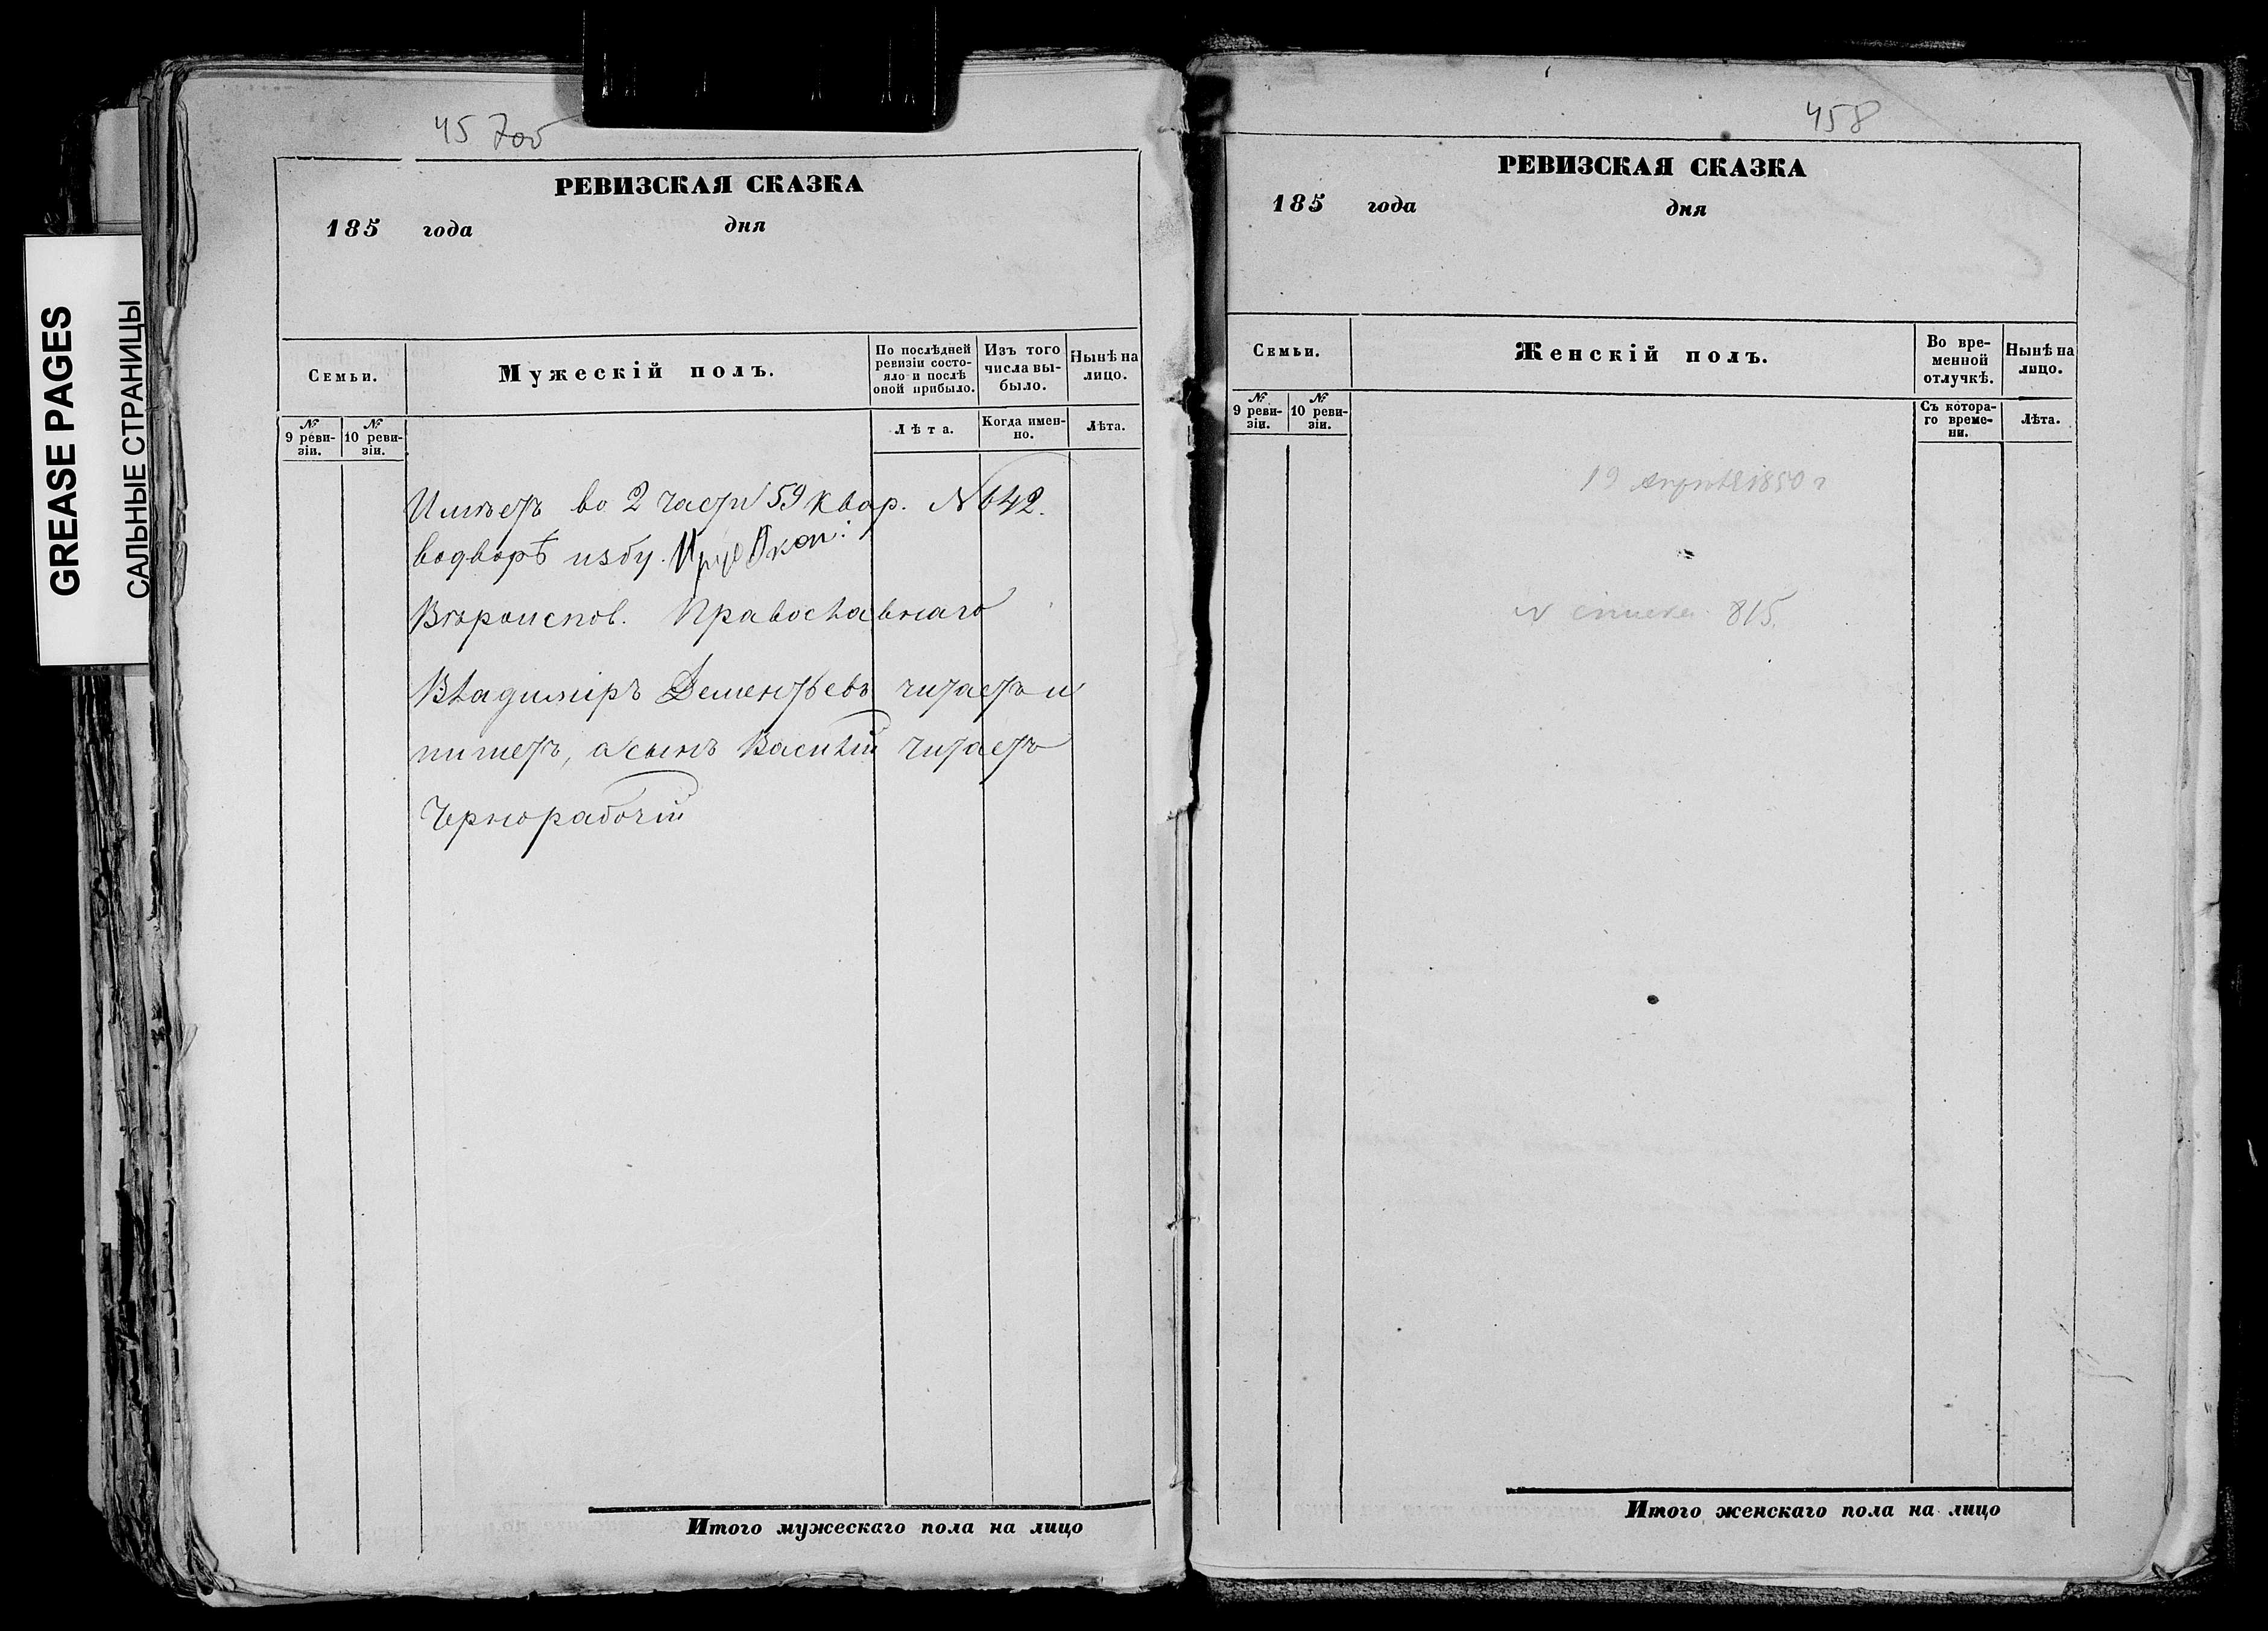 GREASE PAGES
САЛЬНЫЕ СТРАНИЦЫ
457об
РЕВИЗСКАЯ СКАЗКА
185 года дня
Семьи.
Мужескій полъ.
По послѣдней ревизіи состояло и послѣ оной прибыло.
Изъ того числа выбыло.
Нынѣ на лицо.
№ 9 ревизіи.
№ 10 ревизіи.
Лѣта.
Когда именно.
Лѣта.
Имѣетъ во 2 части 59 квар. №642.
водворѣ избу.
Вѣроиспов. Православнаго
Владиміръ Дементьевъ читаетъ и
пишетъ, а сынъ Василій читаетъ
Чернорабочій
Итого мужескаго пола на лицо
458
РЕВИЗСКАЯ СКАЗКА
185 года дня
Семьи.
Женскій полъ.
Во временной отлучкѣ.
Нынѣ на лицо.
№ 9 ревизіи.
№ 10 ревизіи.
Съ котораго времени.
Лѣта.
19 апрѣля 1850 г
№ списка 815.
Итого женскаго пола на лицо